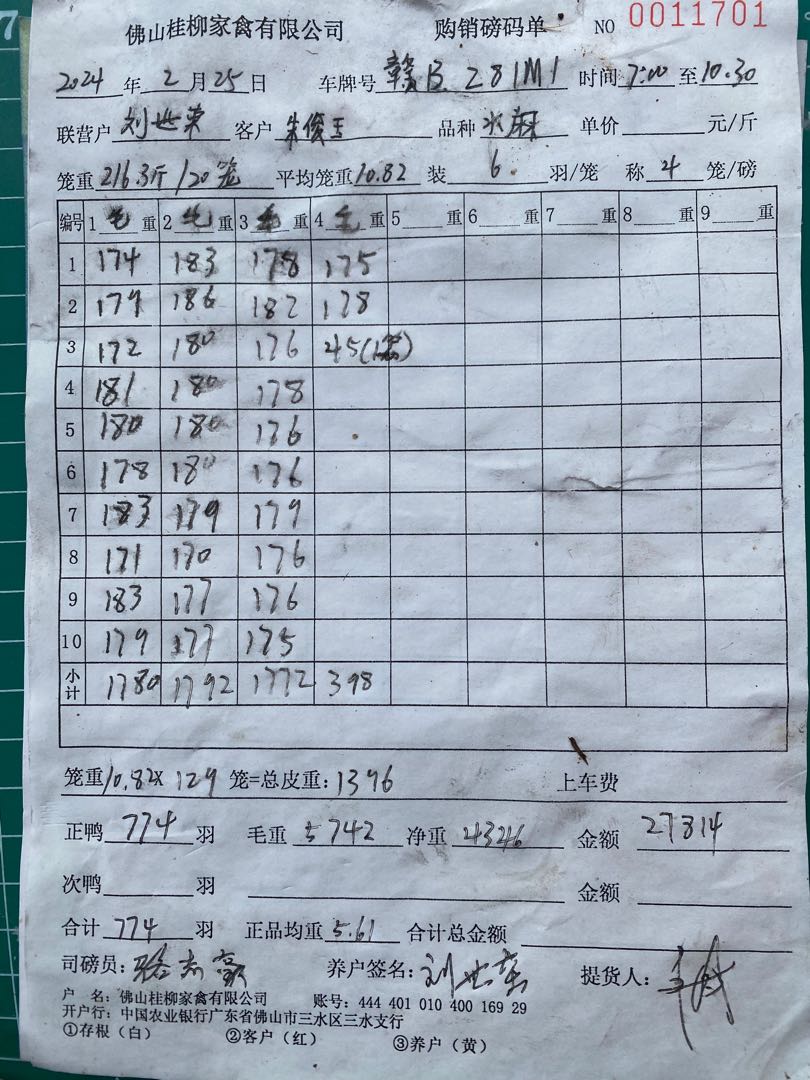 佛山桂柳家禽有限公司 购销磅码单 NO 0011701
2024年2月25日 车牌号 赣B 281M1 时间 7:00 至 10.30
联营户 刘世荣 客户 朱俊玉 品种 水麻 单价 元/斤
笼重 216.3斤/20笼 平均笼重 10.82 装 6 羽/笼 称 4 笼/磅
编号 1 毛 重 2 毛 重 3 毛 重 4 毛 重 5 重 6 重 7 重 8 重 9 重
1 174 183 178 175
2 179 186 182 178
3 172 180 176 45(1笼)
4 181 180 178
5 180 180 176
6 178 180 176
7 183 179 179
8 171 170 176
9 183 177 176
10 179 177 175
小计 1780 1792 1772 398
笼重 10.82X 129 笼=总皮重: 1396 上车费
正鸭 774 羽 毛重 5742 净重 4346 金额 27814
次鸭 羽 金额
合计 774 羽 正品均重 5.61 合计总金额
司磅员: 骆志豪 养户签名: 刘世荣 提货人:
户 名: 佛山桂柳家禽有限公司 账号: 444 401 010 400 169 29
开户行: 中国农业银行广东省佛山市三水区三水支行
①存根(白) ②客户(红) ③养户(黄)